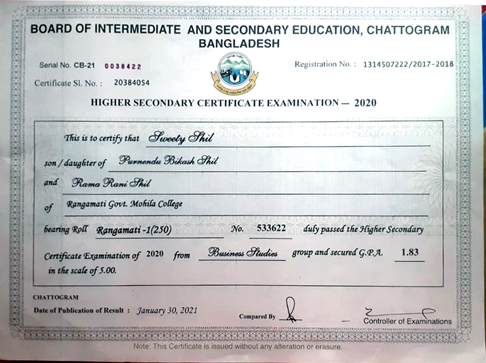 BOARD OF INTERMEDIATE AND SECONDARY EDUCATION, CHATTOGRAM
BANGLADESH
Serial No. CB-21 0038422
Registration No. : 1314507222/2017-2018
Certificate Sl. No. : 20384054
HIGHER SECONDARY CERTIFICATE EXAMINATION — 2020
This is to certify that Sweety Shil
son / daughter of Purnendu Bikash Shil
and Rama Rani Shil
of Rangamati Govt. Mohila College
bearing Roll Rangamati -1(250) No. 533622 duly passed the Higher Secondary
Certificate Examination of 2020 from Business Studies group and secured G.P.A. 1.83
in the scale of 5.00.
CHATTOGRAM
Date of Publication of Result : January 30, 2021
Compared By
Controller of Examinations
Note: This Certificate is issued without any alteration or erasure.